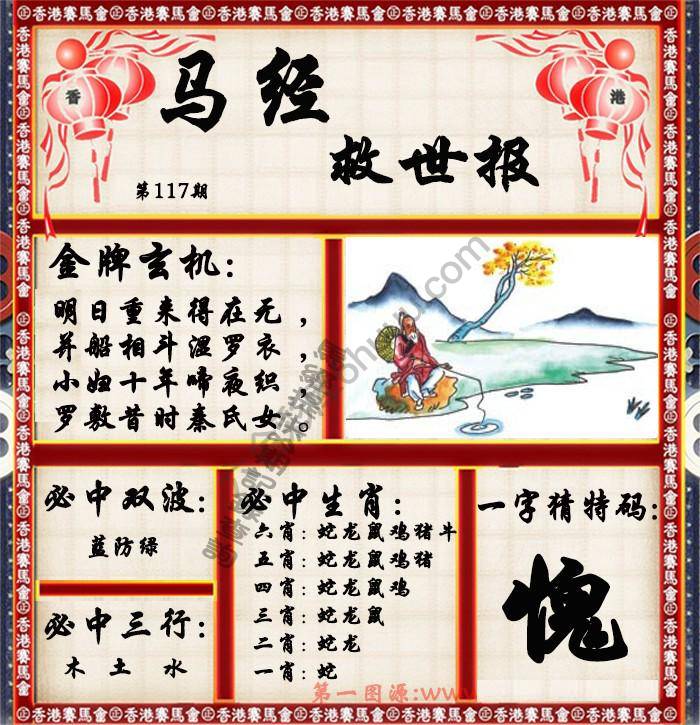 香港賽馬會
香
港
马经
救世报
第117期
金牌玄机：
明日重来得在无，
并船相斗湿罗衣，
小妇十年啼夜织，
罗敷昔时秦氏女。
必中双波：
蓝防绿
必中三行：
木 土 水
必中生肖：
六肖：蛇龙鼠鸡猪牛
五肖：蛇龙鼠鸡猪
四肖：蛇龙鼠鸡
三肖：蛇龙鼠
二肖：蛇龙
一肖：蛇
一字猜特码：
愧
第一图源:www